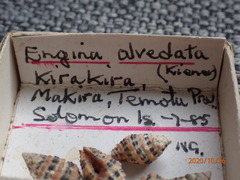 Engina alvedata
Kirakira, (Kiener)
Makira, Temotu Pro,
Solomon Is -7-85
NG.
2020/10/